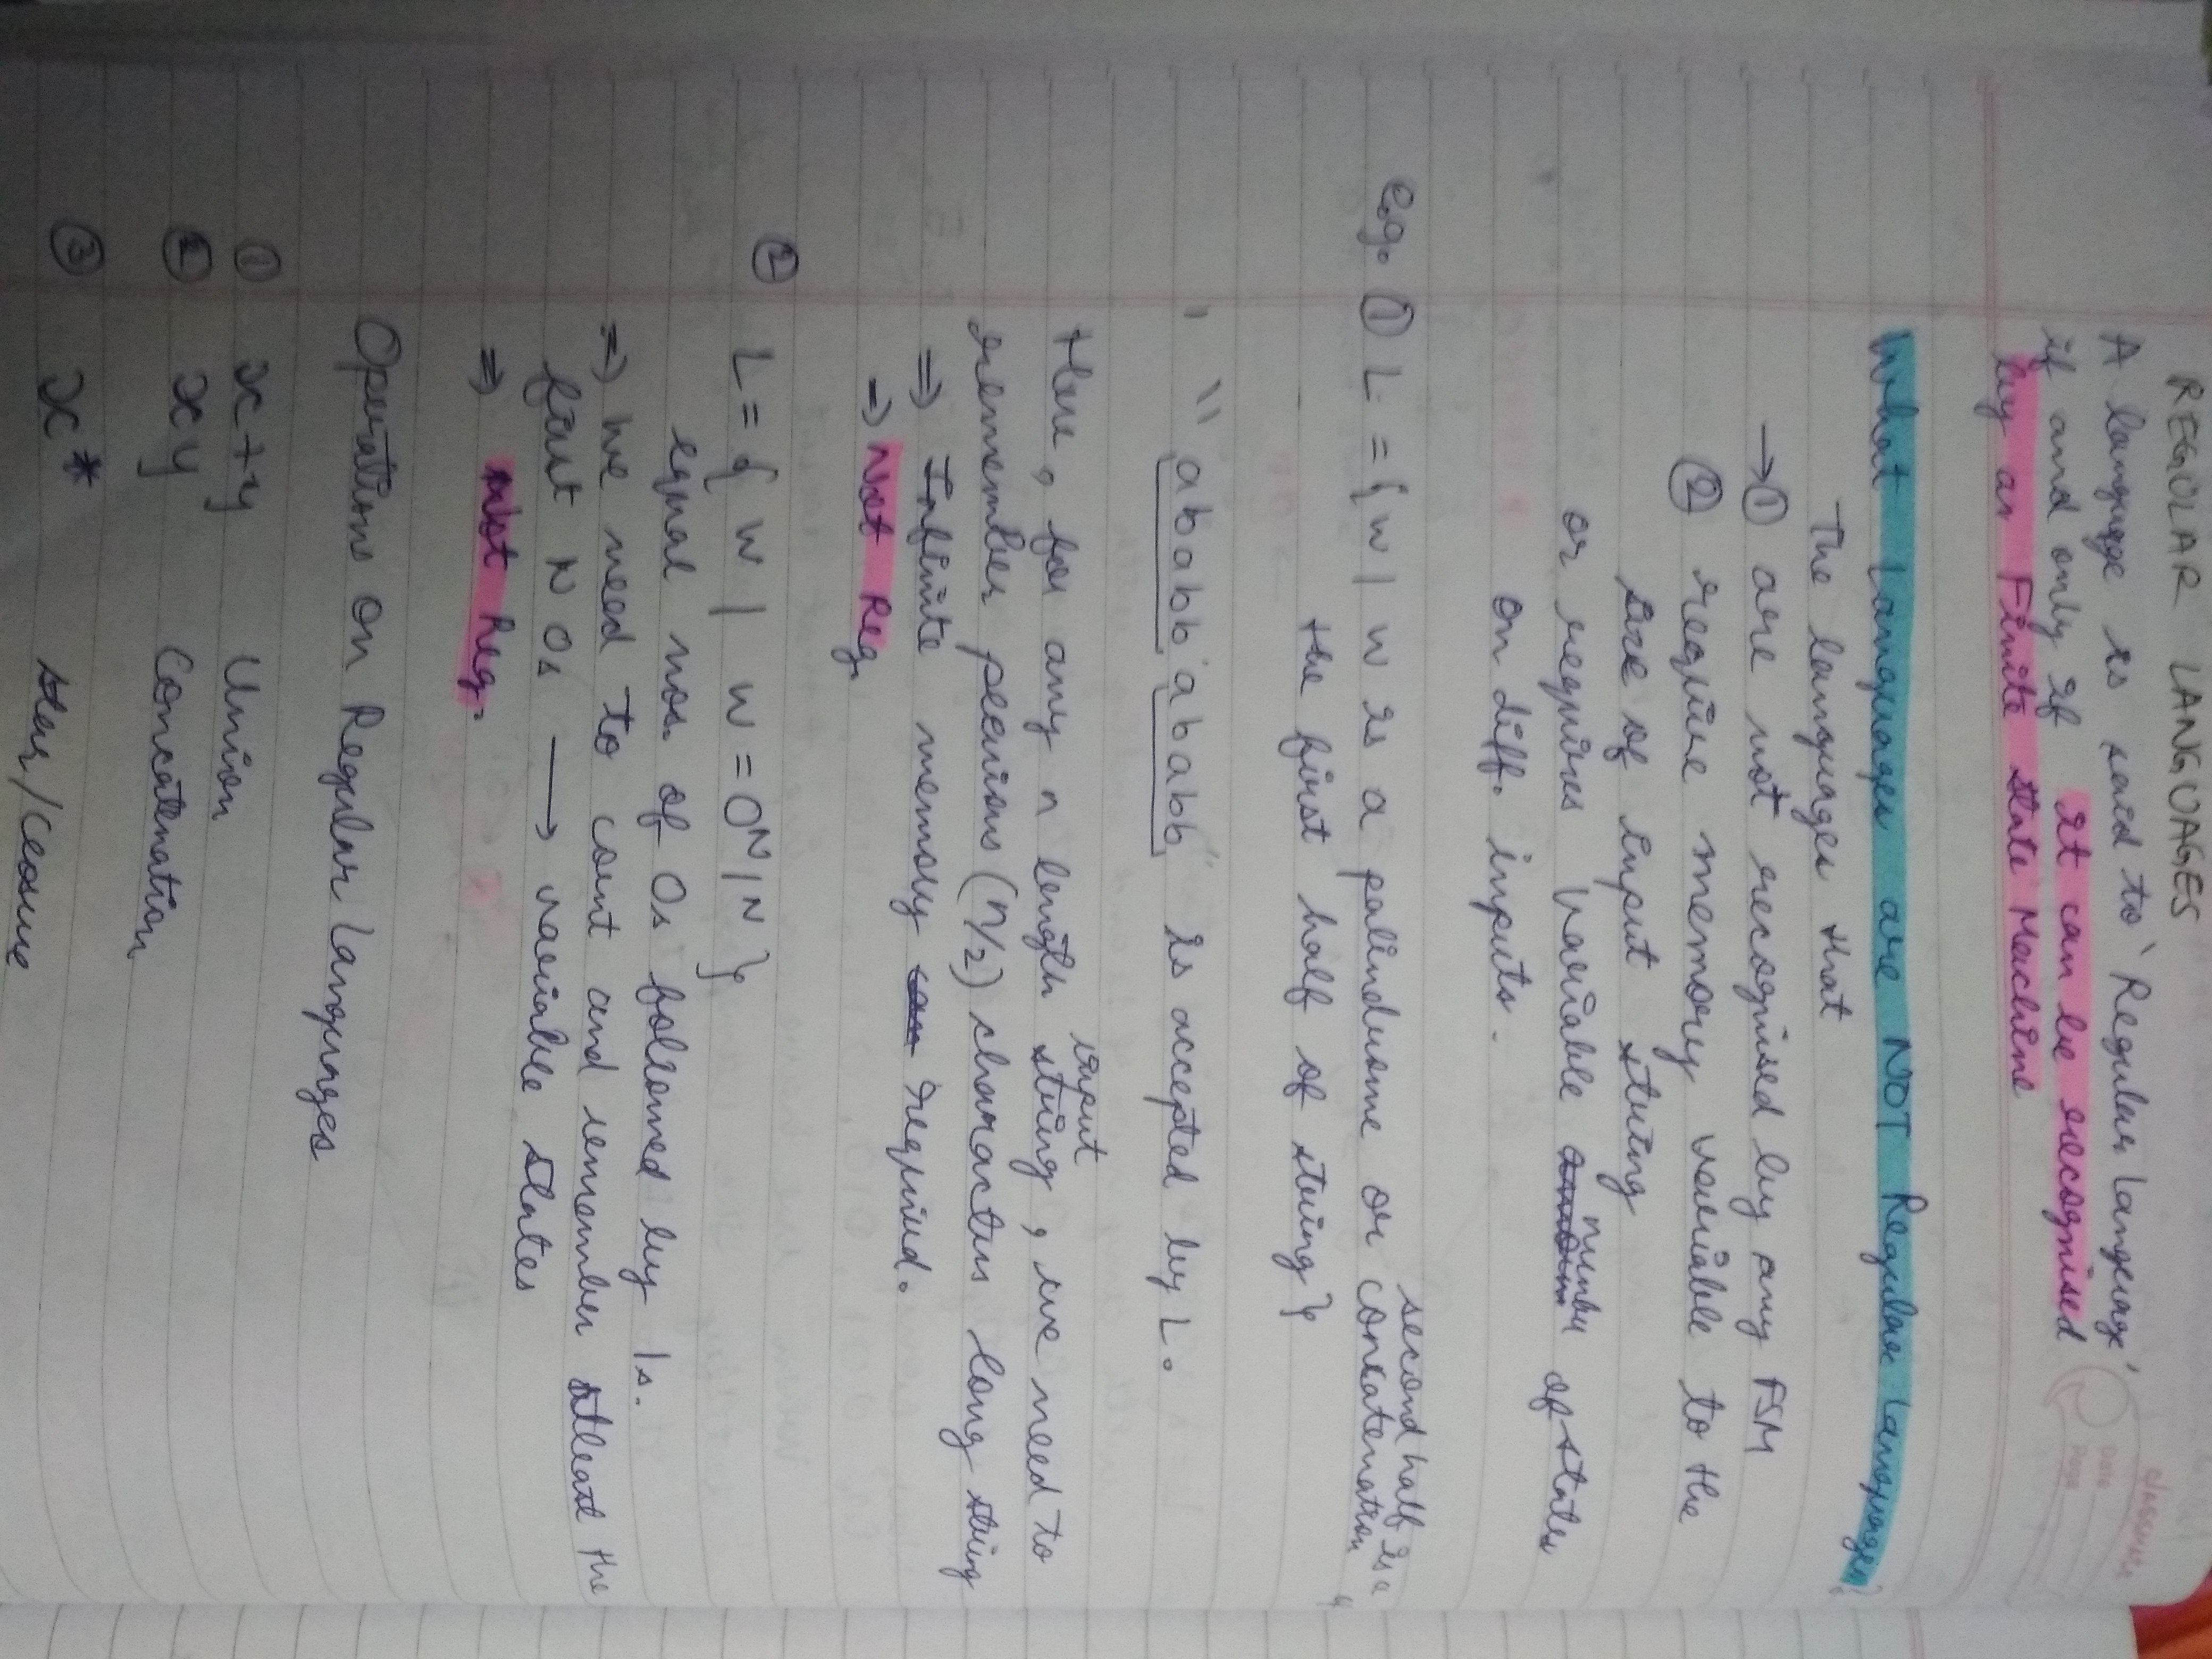 classmate
Date
Page
REGULAR LANGUAGES
A language is said to 'Regular Language'
if and only if it can be recognised
by an Finite state Machine
What languages are NOT Regular Languages?
The languages that
→ ① are not recognised by any FSM
② require memory variable to the
size of input string
or requires variable number of states
on diff. inputs.
e.g. ① L = { w | w is a palindrome or second half is a concatenation
the first half of string }
" ababb ababb " is accepted by L.
Here, for any n length input string, we need to
remember previous (n/2) characters long string
⇒ Infinite memory required.
⇒ Not Reg
② L = { w | w = 0ᴺ1ᴺ }
equal nos. of 0s followed by 1s.
⇒ We need to count and remember atleast the
first N 0s ⟶ variable states
⇒ Not Reg.
Operations on Regular Languages
① x+y Union
② xy Concatenation
③ x* star/